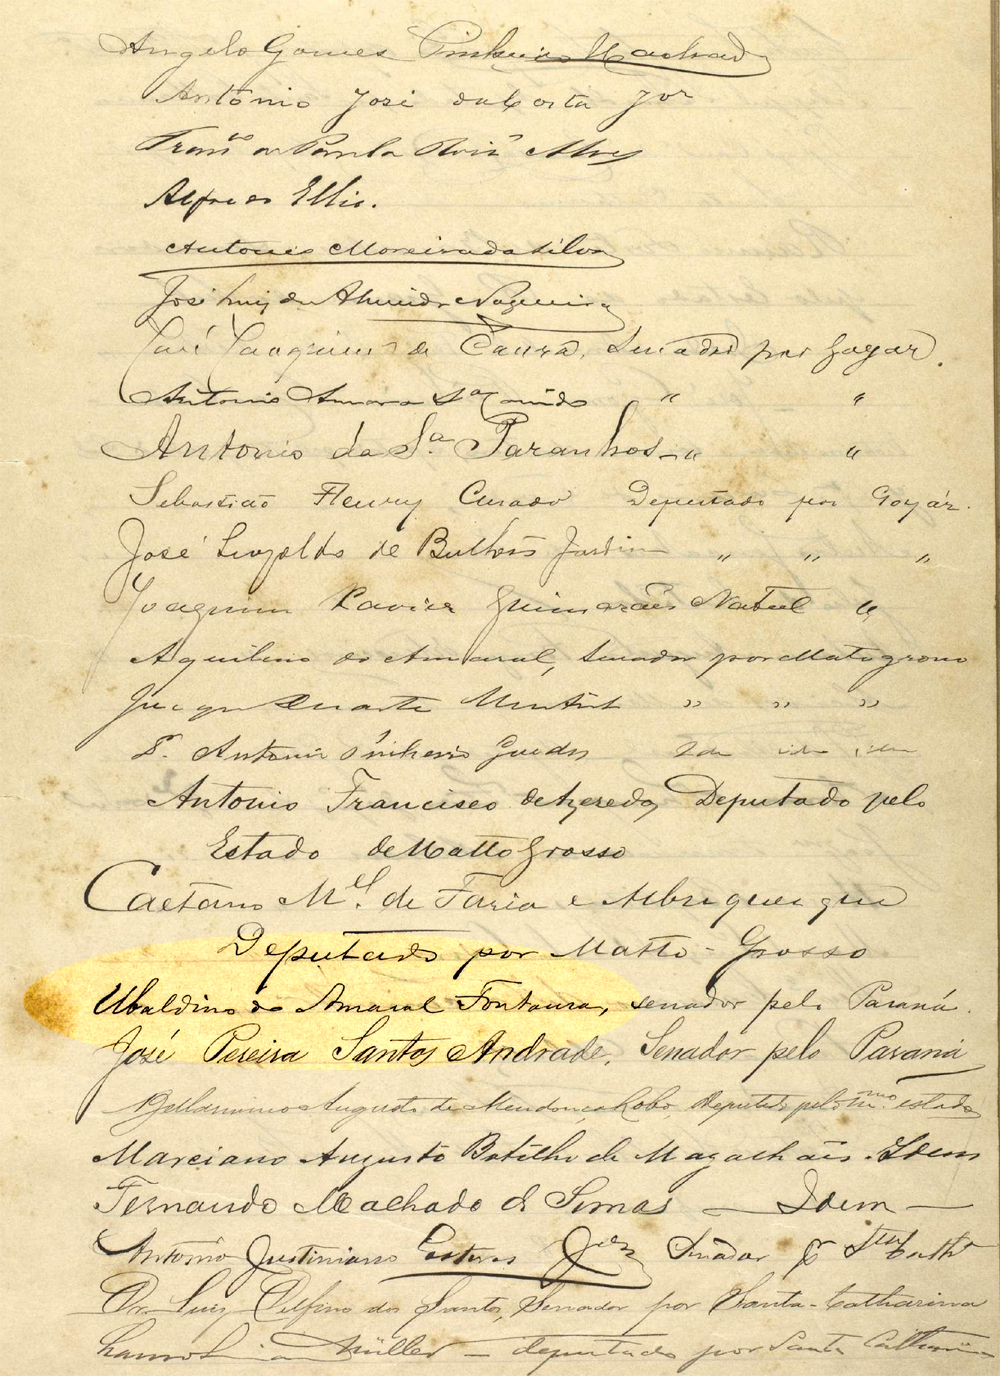 Angelo Gomes Pinheiro Machado
Antônio José da Costa Jor
Franco de Paula Roiz Alves
Alfredo Ellis.
Antonio Moreira da Silva
José Luiz de Almeida Nogueira
José Joaquim de Souza, Senador por Goyaz.
Antonio Amaro Sa Canedo " "
Antonio da Sa. Paranhos - " "
Sebastião Fleury Curado Deputado por Goyáz.
José Leopoldo de Bulhões Jardim " " "
Joaquim Xavier Guimarães Natal "
Aquilino do Amaral, Senador por Mato grosso
Joaquim Duarte Murtinho " " "
Dr. Antonio Pinheiro Guedes idem idem idem
Antonio Francisco de Azeredo, Deputado pelo
Estado de Matto Grosso
Caetano Mel. de Faria e Albuquerque
Deputado por Matto-Grosso
Ubaldino do Amaral Fontoura, senador pelo Paraná.
José Pereira Santos Andrade, Senador pelo Paraná
Bellarmino Augusto de Mendonça Lobo, Deputado pelo mmo estado
Marciano Augusto Botelho de Magalhães. Idem
Fernando Machado de Simas — Idem —
Antonio Justiniano Esteves Jor Senador p Sta Cathª
Dr. Luiz Delfino dos Santos, Senador por Santa-Catharina
Lauro Müller — deputado por Santa Catharina